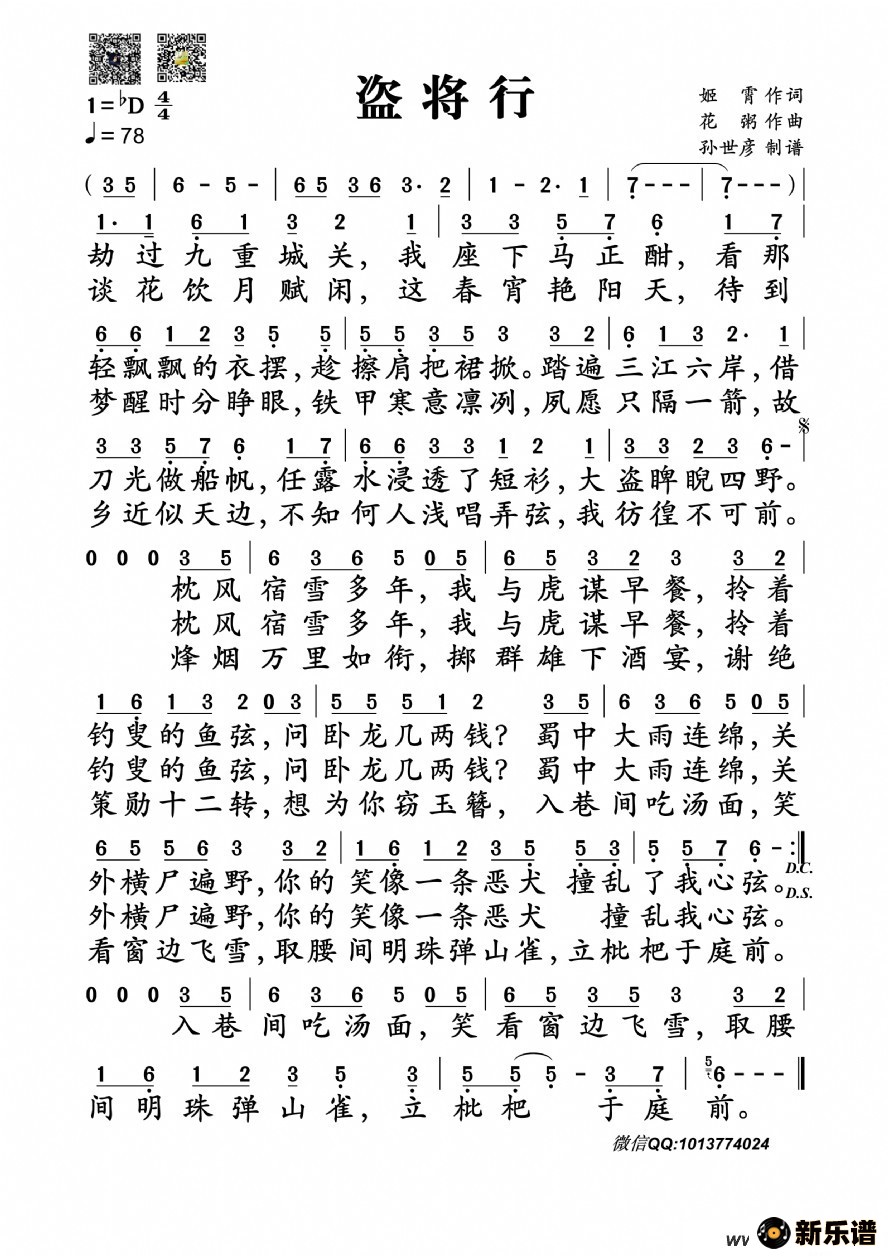 盗将行
1=♭D 4/4
♩=78
姬 霄 作词
花 粥 作曲
孙世彦 制谱
( 3 5 | 6 - 5 - | 6 5 3 6 3· 2 | 1 - 2· 1 | 7 - - - | 7 - - - )|
1· 1 6 1 3 2 1 | 3 3 5 7 6 1 7 |
劫过九重城关，我座下马正酣，看那
谈花饮月赋闲，这春宵艳阳天，待到
6 6 1 2 3 5 5 | 5 5 3 5 3 3 2 | 6 1 3 2· 1 |
轻飘飘的衣摆，趁擦肩把裙掀。踏遍三江六岸，借
梦醒时分睁眼，铁甲寒意凛冽，夙愿只隔一箭，故
3 3 5 7 6 1 7 | 6 6 3 3 1 2 1 | 3 3 2 3 6 - |
刀光做船帆，任露水浸透了短衫，大盗睥睨四野。
乡近似天边，不知何人浅唱弄弦，我彷徨不可前。
0 0 0 3 5 | 6 3 6 5 0 5 | 6 5 3 2 3 3 2 |
枕风宿雪多年，我与虎谋早餐，拎着
枕风宿雪多年，我与虎谋早餐，拎着
烽烟万里如衔，掷群雄下酒宴，谢绝
1 6 1 3 2 0 3 | 5 5 5 1 2 3 5 | 6 3 6 5 0 5 |
钓叟的鱼弦，问卧龙几两钱？蜀中大雨连绵，关
钓叟的鱼弦，问卧龙几两钱？蜀中大雨连绵，关
策勋十二转，想为你窃玉簪，入巷间吃汤面，笑
6 5 5 6 3 3 2 | 1 6 1 2 3 5 5 3 | 5 5 7 6 - :||
D.C.
D.S.
外横尸遍野，你的笑像一条恶犬 撞乱了我心弦。
外横尸遍野，你的笑像一条恶犬 撞乱我心弦。
看窗边飞雪，取腰间明珠弹山雀，立枇杷于庭前。
0 0 0 3 5 | 6 3 6 5 0 5 | 6 5 3 5 3 3 2 |
入巷间吃汤面，笑看窗边飞雪，取腰
1 6 1 2 3 5 3 | 5 5 5 - 3 7 | 5 6 - - - ||
间明珠弹山雀，立枇杷 于庭前。
微信QQ:1013774024
新乐谱